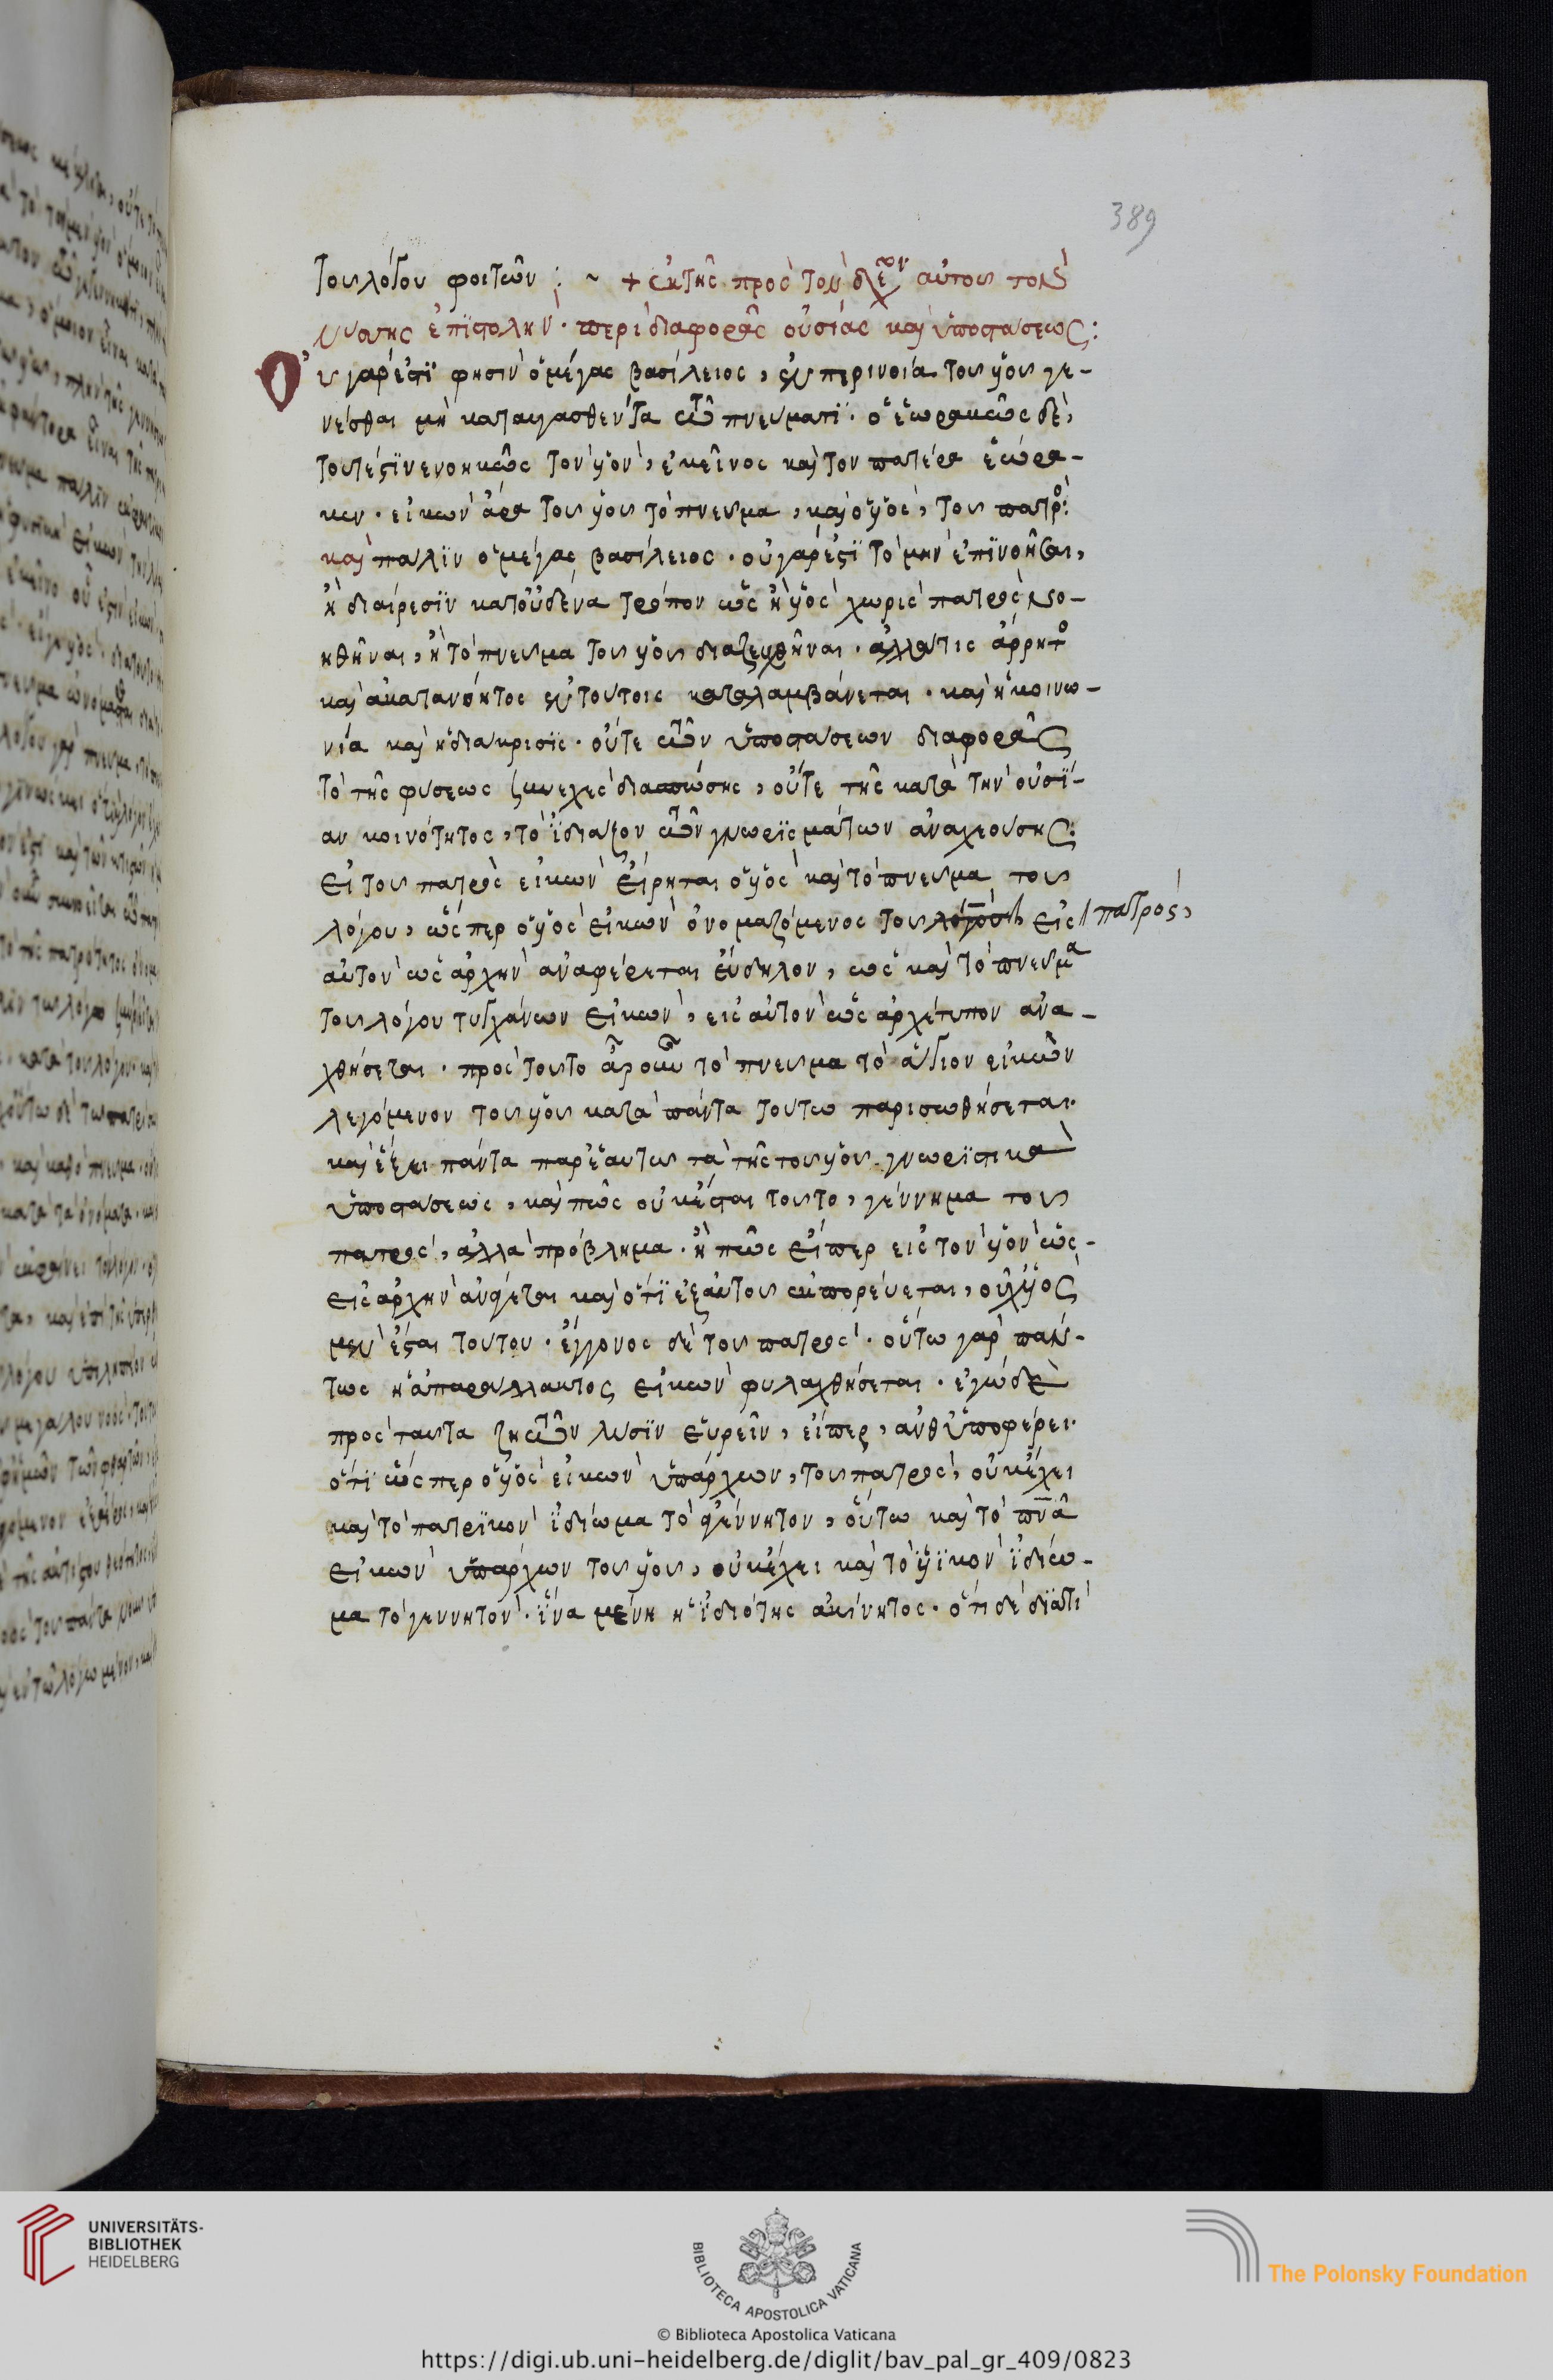 389
τοῦ λόγου φοιτῶν : ~ + ἐκ τῆς πρὸς τὸν ἀδελφὸν αὐτοῦ τὸν
νύσης ἐπιστολὴν · περὶ διαφορᾶς οὐσίας καὶ ὑποστάσεως :
Οὐ γάρ ἐστι φησὶν ὁ μέγας βασίλειος, ἐν περινοία τοῦ υἱοῦ γε-
νέσθαι μὴ καταυγασθέντα τῶ πνεύματι · ὁ ἑωρακὼς δὲ,
τουτέστι νενοηκὼς τὸν υἱὸν, ἐκεῖνος καὶ τὸν πατέρα ἑώρα-
κεν · εἰκὼν ἄρα τοῦ υἱοῦ τὸ πνεῦμα, καὶ ὁ υἱὸς, τοῦ πατρός :
καὶ πάλιν ὁ μέγας βασίλειος · οὐ γάρ ἐστι τομὴν ἐπινοῆσαι,
ἢ διαίρεσιν κατ' οὐδένα τρόπον ὡς ἢ υἱὸς χωρὶς πατρὸς νο-
ηθῆναι, ἢ τὸ πνεῦμα τοῦ υἱοῦ διαζευχθῆναι · ἀλλά τις ἄρρητος
καὶ ἀκατανόητος ἐν τούτοις καταλαμβάνεται · καὶ ἡ κοινω-
νία καὶ ἡ διάκρισις · οὔτε τῶν ὑποστάσεων διαφορᾶς
τὸ τῆς φύσεως συνεχὲς διασπώσης, οὔτε τῆς κατὰ τὴν οὐσί-
αν κοινότητος, τὸ ἰδιάζον τῶν γνωρισμάτων ἀναχεούσης :
Εἰ τοῦ πατρὸς εἰκὼν εἴρηται ὁ υἱὸς καὶ τὸ πνεῦμα τοῦ
λόγου, ὥσπερ ὁ υἱὸς εἰκὼν ὀνομαζόμενος τοῦ λόγου εἰς πατρός,
αὐτὸν ὡς ἀρχὴν ἀναφέρεται εὔδηλον, ὡς καὶ τὸ πνεῦμα
τοῦ λόγου τυγχάνων εἰκὼν, εἰς αὐτὸν ὡς ἀρχέτυπον ἀνα-
χθήσεται · πρὸς τοῦτο ἆρ' οὖν τὸ πνεῦμα τὸ ἅγιον εἰκὼν
λεγόμενον τοῦ υἱοῦ κατὰ πάντα τούτω παρισωθήσεται.
καὶ ἕξει πάντα παρ' ἑαυτῶ τὰ τῆς τοῦ υἱοῦ γνωριστικὰ
ὑποστάσεως, καὶ πῶς οὐκ ἔσται τοῦτο, γέννημα τοῦ
πατρὸς, ἀλλὰ πρόβλημα · ἢ πῶς εἴπερ εἰς τὸν υἱὸν ὡς-
εἰς ἀρχὴν ἀνάγεται καὶ ὅτι ἐξ αὐτοῦ ἐκπορεύεται, οὐχ υἱὸς
μὲν ἔσται τούτου · ἔγγονος δὲ τοῦ πατρὸς · οὕτω γὰρ πάν-
τως ἡ ἀπαράλλακτος εἰκὼν φυλαχθήσεται · ἐγὼ δὲ
πρὸς ταῦτα ζητῶν λύσιν εὑρεῖν, εἴπερ, ἀνθυποφέρει ·
ὅτι ὥσπερ ὁ υἱὸς εἰκὼν ὑπάρχων, τοῦ πατρὸς, οὐκ ἔχει
καὶ τὸ πατρικὸν ἰδίωμα τὸ ἀγέννητον, οὕτω καὶ τὸ πνᾶ
εἰκὼν ὑπάρχων τοῦ υἱοῦ, οὐκ ἔχει καὶ τὸ υἱικὸν ἰδίω-
μα τὸ γεννητόν · ἵνα μένη ἡ ἰδιότης ἀκίνητος · ὅτι δὲ διατὶ
UNIVERSITÄTS-
BIBLIOTHEK
HEIDELBERG
BIBLIOTECA APOSTOLICA VATICANA
The Polonsky Foundation
© Biblioteca Apostolica Vaticana
https://digi.ub.uni-heidelberg.de/diglit/bav_pal_gr_409/0823